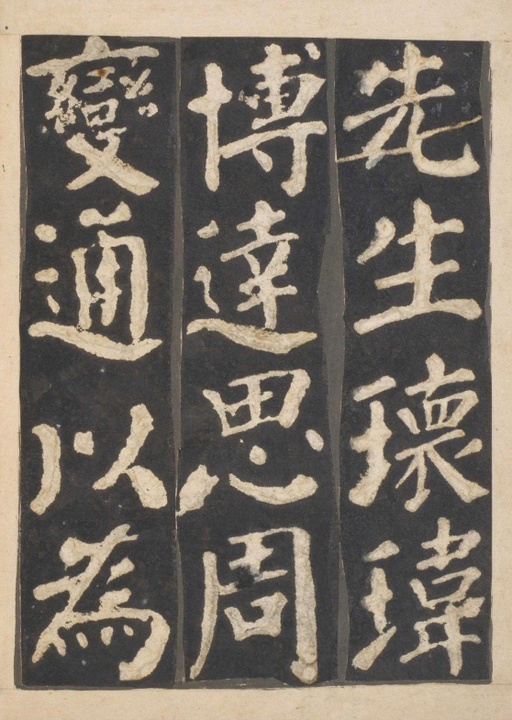 先生瓌瑋
博達思周
變通以為